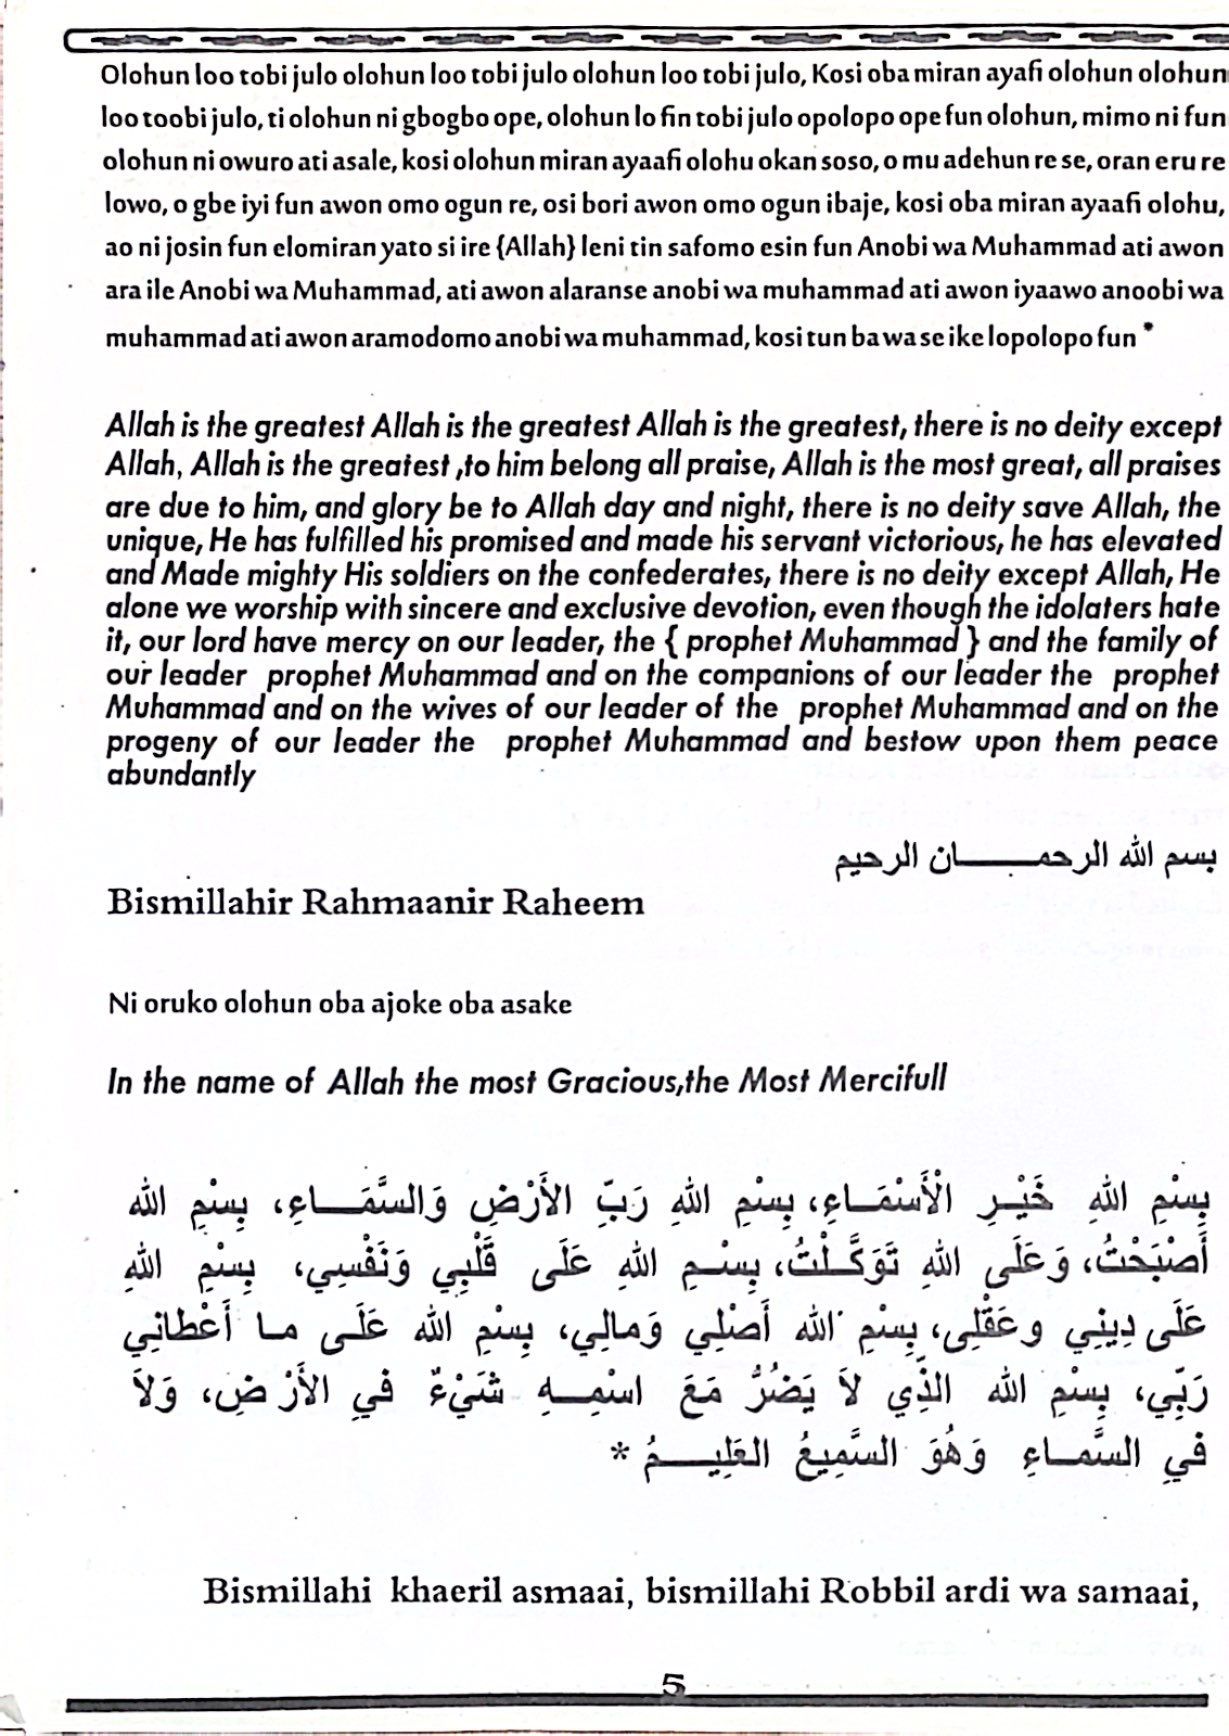 Olohun loo tobi julo olohun loo tobi julo olohun loo tobi julo, Kosi oba miran ayafi olohun olohun
loo toobi julo, ti olohun ni gbogbo ope, olohun lo fin tobi julo opolopo ope fun olohun, mimo ni fun
olohun ni owuro ati asale, kosi olohun miran ayaafi olohu okan soso, o mu adehun re se, oran eru re
lowo, o gbe iyi fun awon omo ogun re, osi bori awon omo ogun ibaje, kosi oba miran ayaafi olohu,
ao ni josin fun elomiran yato si ire {Allah} leni tin safomo esin fun Anobi wa Muhammad ati awon
ara ile Anobi wa Muhammad, ati awon alaranse anobi wa muhammad ati awon iyaawo anoobi wa
muhammad ati awon aramodomo anobi wa muhammad, kosi tun ba wa se ike lopolopo fun *
Allah is the greatest Allah is the greatest Allah is the greatest, there is no deity except
Allah, Allah is the greatest ,to him belong all praise, Allah is the most great, all praises
are due to him, and glory be to Allah day and night, there is no deity save Allah, the
unique, He has fulfilled his promised and made his servant victorious, he has elevated
and Made mighty His soldiers on the confederates, there is no deity except Allah, He
alone we worship with sincere and exclusive devotion, even though the idolaters hate
it, our lord have mercy on our leader, the { prophet Muhammad } and the family of
our leader prophet Muhammad and on the companions of our leader the prophet
Muhammad and on the wives of our leader of the prophet Muhammad and on the
progeny of our leader the prophet Muhammad and bestow upon them peace
abundantly
بسم الله الرحمـــــان الرحيم
Bismillahir Rahmaanir Raheem
Ni oruko olohun oba ajoke oba asake
In the name of Allah the most Gracious,the Most Mercifull
بِسْمِ اللهِ خَيْـرِ الْأَسْمَـاءِ، بِسْمِ اللهِ رَبِّ الأَرْضِ وَالسَّمَـــاءِ، بِسْمِ الله
أَصْبَحْتُ، وَعَلَى اللهِ تَوَكَّـلْتُ، بِسْـمِ اللهِ عَلَى قَلْبِي وَنَفْسِي، بِسْمِ اللهِ
عَلَى دِينِي وعَقْلِى، بِسْمِ الله أَصْلِي وَمالِي، بِسْمِ الله عَلَـى مـا أَعْطانِي
رَبِّي، بِسْمِ الله الذِّي لاَ يَضُرُّ مَعَ اسْمِـــهِ شَيْءٌ فيِ الأَرْضِ، وَلاَ
فيِ السَّمـاءِ وَهُوَ السَّمِيعُ العَلِيـــمُ *
Bismillahi khaeril asmaai, bismillahi Robbil ardi wa samaai,
5